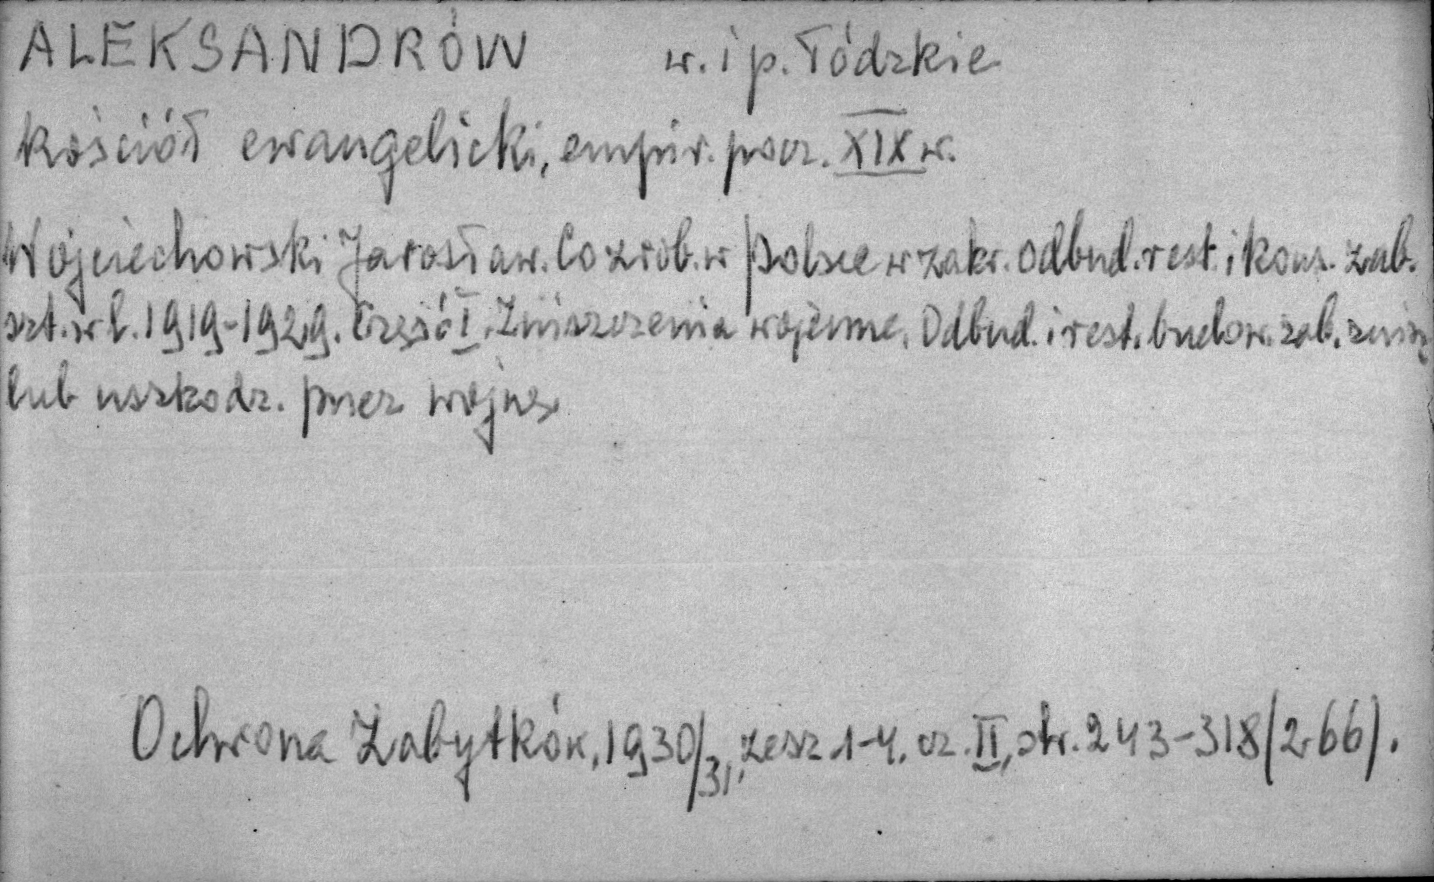 ALEKSANDRÓW w. i p. Łódzkie
kościół ewangelicki, empir. pocz. XIX w.
Wojciechowski Jarosław. Co zrob. w Polsce w zakr. odbud. rest. i kons. zab.
szt. w l. 1919-1929. Część I. Zniszczenia wojenne. Odbud. i rest. budow. zab. zniszcz
lub uszkodz. przez wojnę.
Ochrona Zabytków, 1930/31, zesz 1-4. cz. II, str. 243-318 (266).